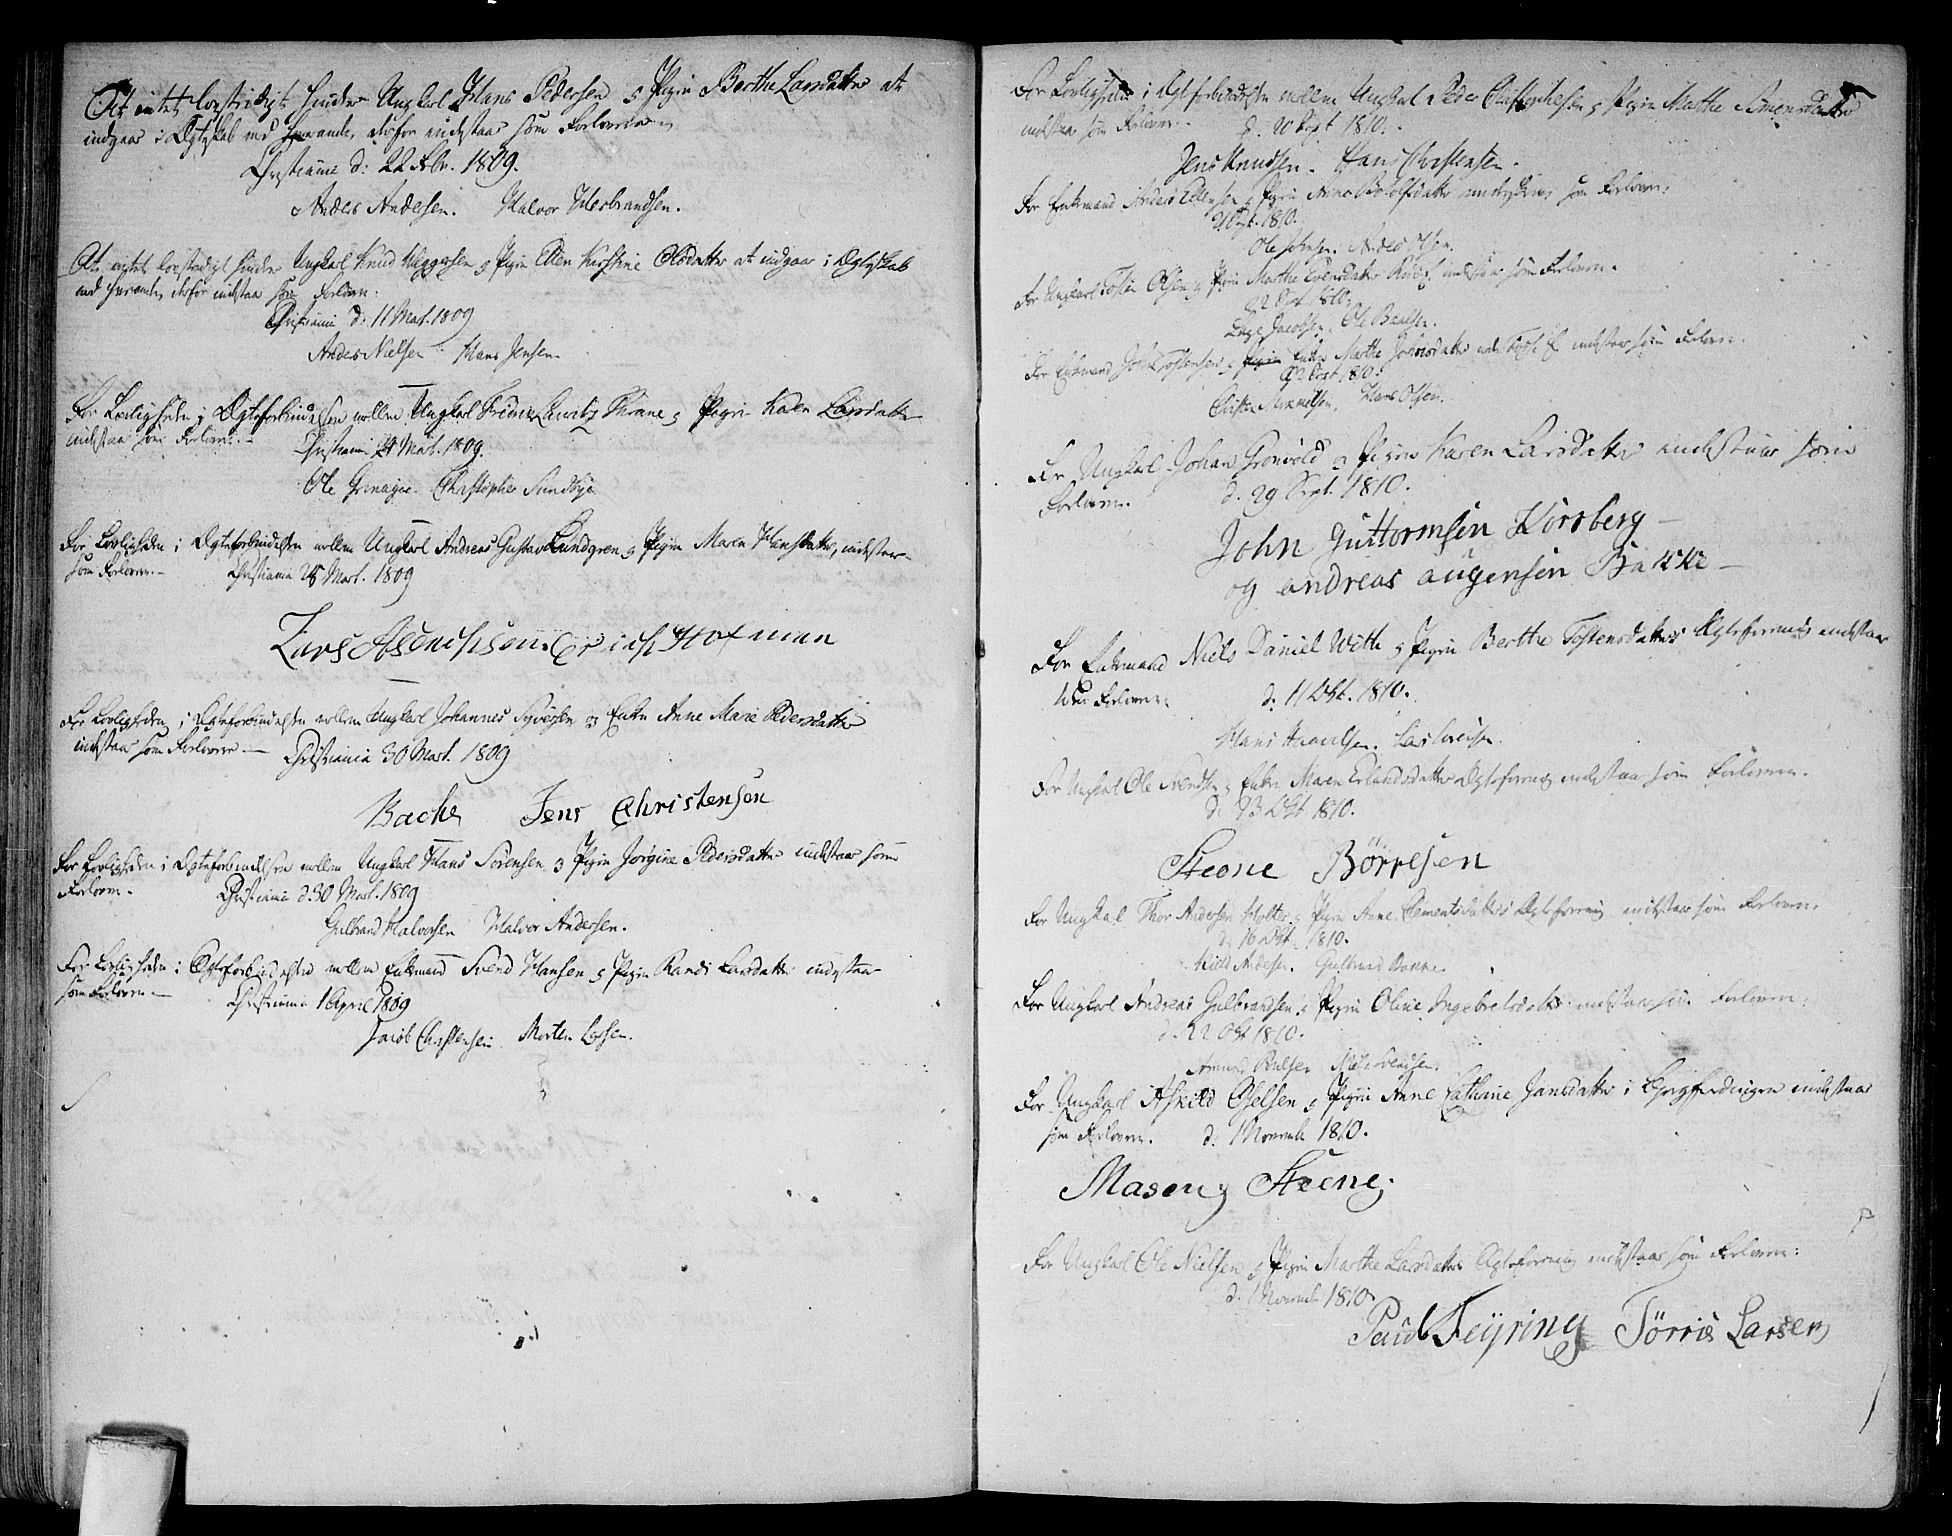 At intet lovstridigt hindrer Ungkarl Hans Pedersen og Pigen Berthe Larsdatter at
indgaae i Ægteskab med hverandre, derfor indestaar som Forlovere
Christiania d: 22 Febr. 1809.
Anders Andersen. Halvor Herbrandsen.
At intet lovstridigt hindrer Ungkarl Knud Wiggersen og Pigen Ellen Kirstine Olsdatter at indgaae i Ægteskab
med hverandre, derfor indestaar som Forlovere:
Christiania d: 11 Mart. 1809
Anders Nielsen Hans Jensen
For Lovligheden i Ægteforbindelsen mellem Ungkarl Lauritz Thrane og Pigen Karen Larsdatter
indestaar som Forlovere.
Christiania 24 Mart. 1809.
Ole Christopher Sundbye
For Lovligheden i Ægteforbindelsen mellem Ungkarl Andreas Gustav Lundgren og Pigen Maren Hansdatter, indestaar
som Forlovere.
Christiania 25 Mart. 1809
Lars Erich Hofman
For Lovligheden i Ægteforbindelsen mellem Ungkarl Johannes Syversen og Enken Anne Marie Pedersdatter
indestaar som Forlovere
Christiania 30 Mart. 1809
Bache Jens Christensen
For Lovligheden i Ægteforbindelsen mellem Ungkarl Hans Sörensen og Pigen Jörgine Pedersdatter indestaar som
Forlovere.
Christiania d. 30 Mart. 1809
Gulbrand Halvorsen Halvor Andersen.
For Lovligheden i Ægteforbindelsen mellem Enkemand Svend Hansen og Pigen Randi Larsdatter indestaar
som Forlovere
Christiania 1 April 1809
Jacob Christensen Morten Larsen.
For Lovligheden i Ægteforbindelsen mellem Ungkarl Peder Christophersen og Pigen Marthe Simensdatter
indestaar som Forlovere.
d: 20 Sept 1810.
Jens Knudsen. Hans Christensen.
For Enkemand Anders Ellensen og Pigen Anne som Forlovere:
Sept. 1810.
Ole Anders Olsen.
For Ungkarl Olsen og Pigen Marthe indestaar som Forlovere.
22 Sept. 1810.
Jacobsen, Ole Paulsen.
For Enkemand John Tostensen og Enken Marthe Johnsdatter indestaar som Forlovere.
Sept. 1810.
Christen Hans Olsen.
For Ungkarl Johan Grönvold og Pigen Karen Larsdatter indestaar som
Forlovere.
d. 29 Sept. 1810.
John Guttormsen Korsberg
og andreas augensen Bakke
For Enkemand Niels Daniel With og Pigen Berthe Tostensdatters Ægteforening indestaar
som Forlovere:
d. 11 Oct. 1810.
Hans
For Ungkarl Ole Svendsen og Enken Maren Erlandsdatters Ægteforening indestaar som Forlovere.
d. 13 Oct 1810.
Steene Börresen
For Ungkarl Thor Andersen Holter og Pigen Anne Clementsdatters Ægteforening indestaar som Forlovere.
d. 16 Oct. 1810.
Kield Andersen. Gulbrand
For Ungkarl Andreas Gulbrandsen og Pigen Oline Ingebretsdatter indestaar som Forlovere:
d. 22 Oct 1810.
Amund Paulsen
For Ungkarl Askild Olsen og Pigen Anne Cathrine Jansdatter i indestaar
som Forlovere.
d. 1 Novembr 1810.
Maseng Steene.
For Ungkarl Ole Nielsen og Pigen Marthe Larsdatters Ægteforening indestaar som Forlovere:
d. 1 Novembr 1810.
Paul Feÿring Törris Larsen